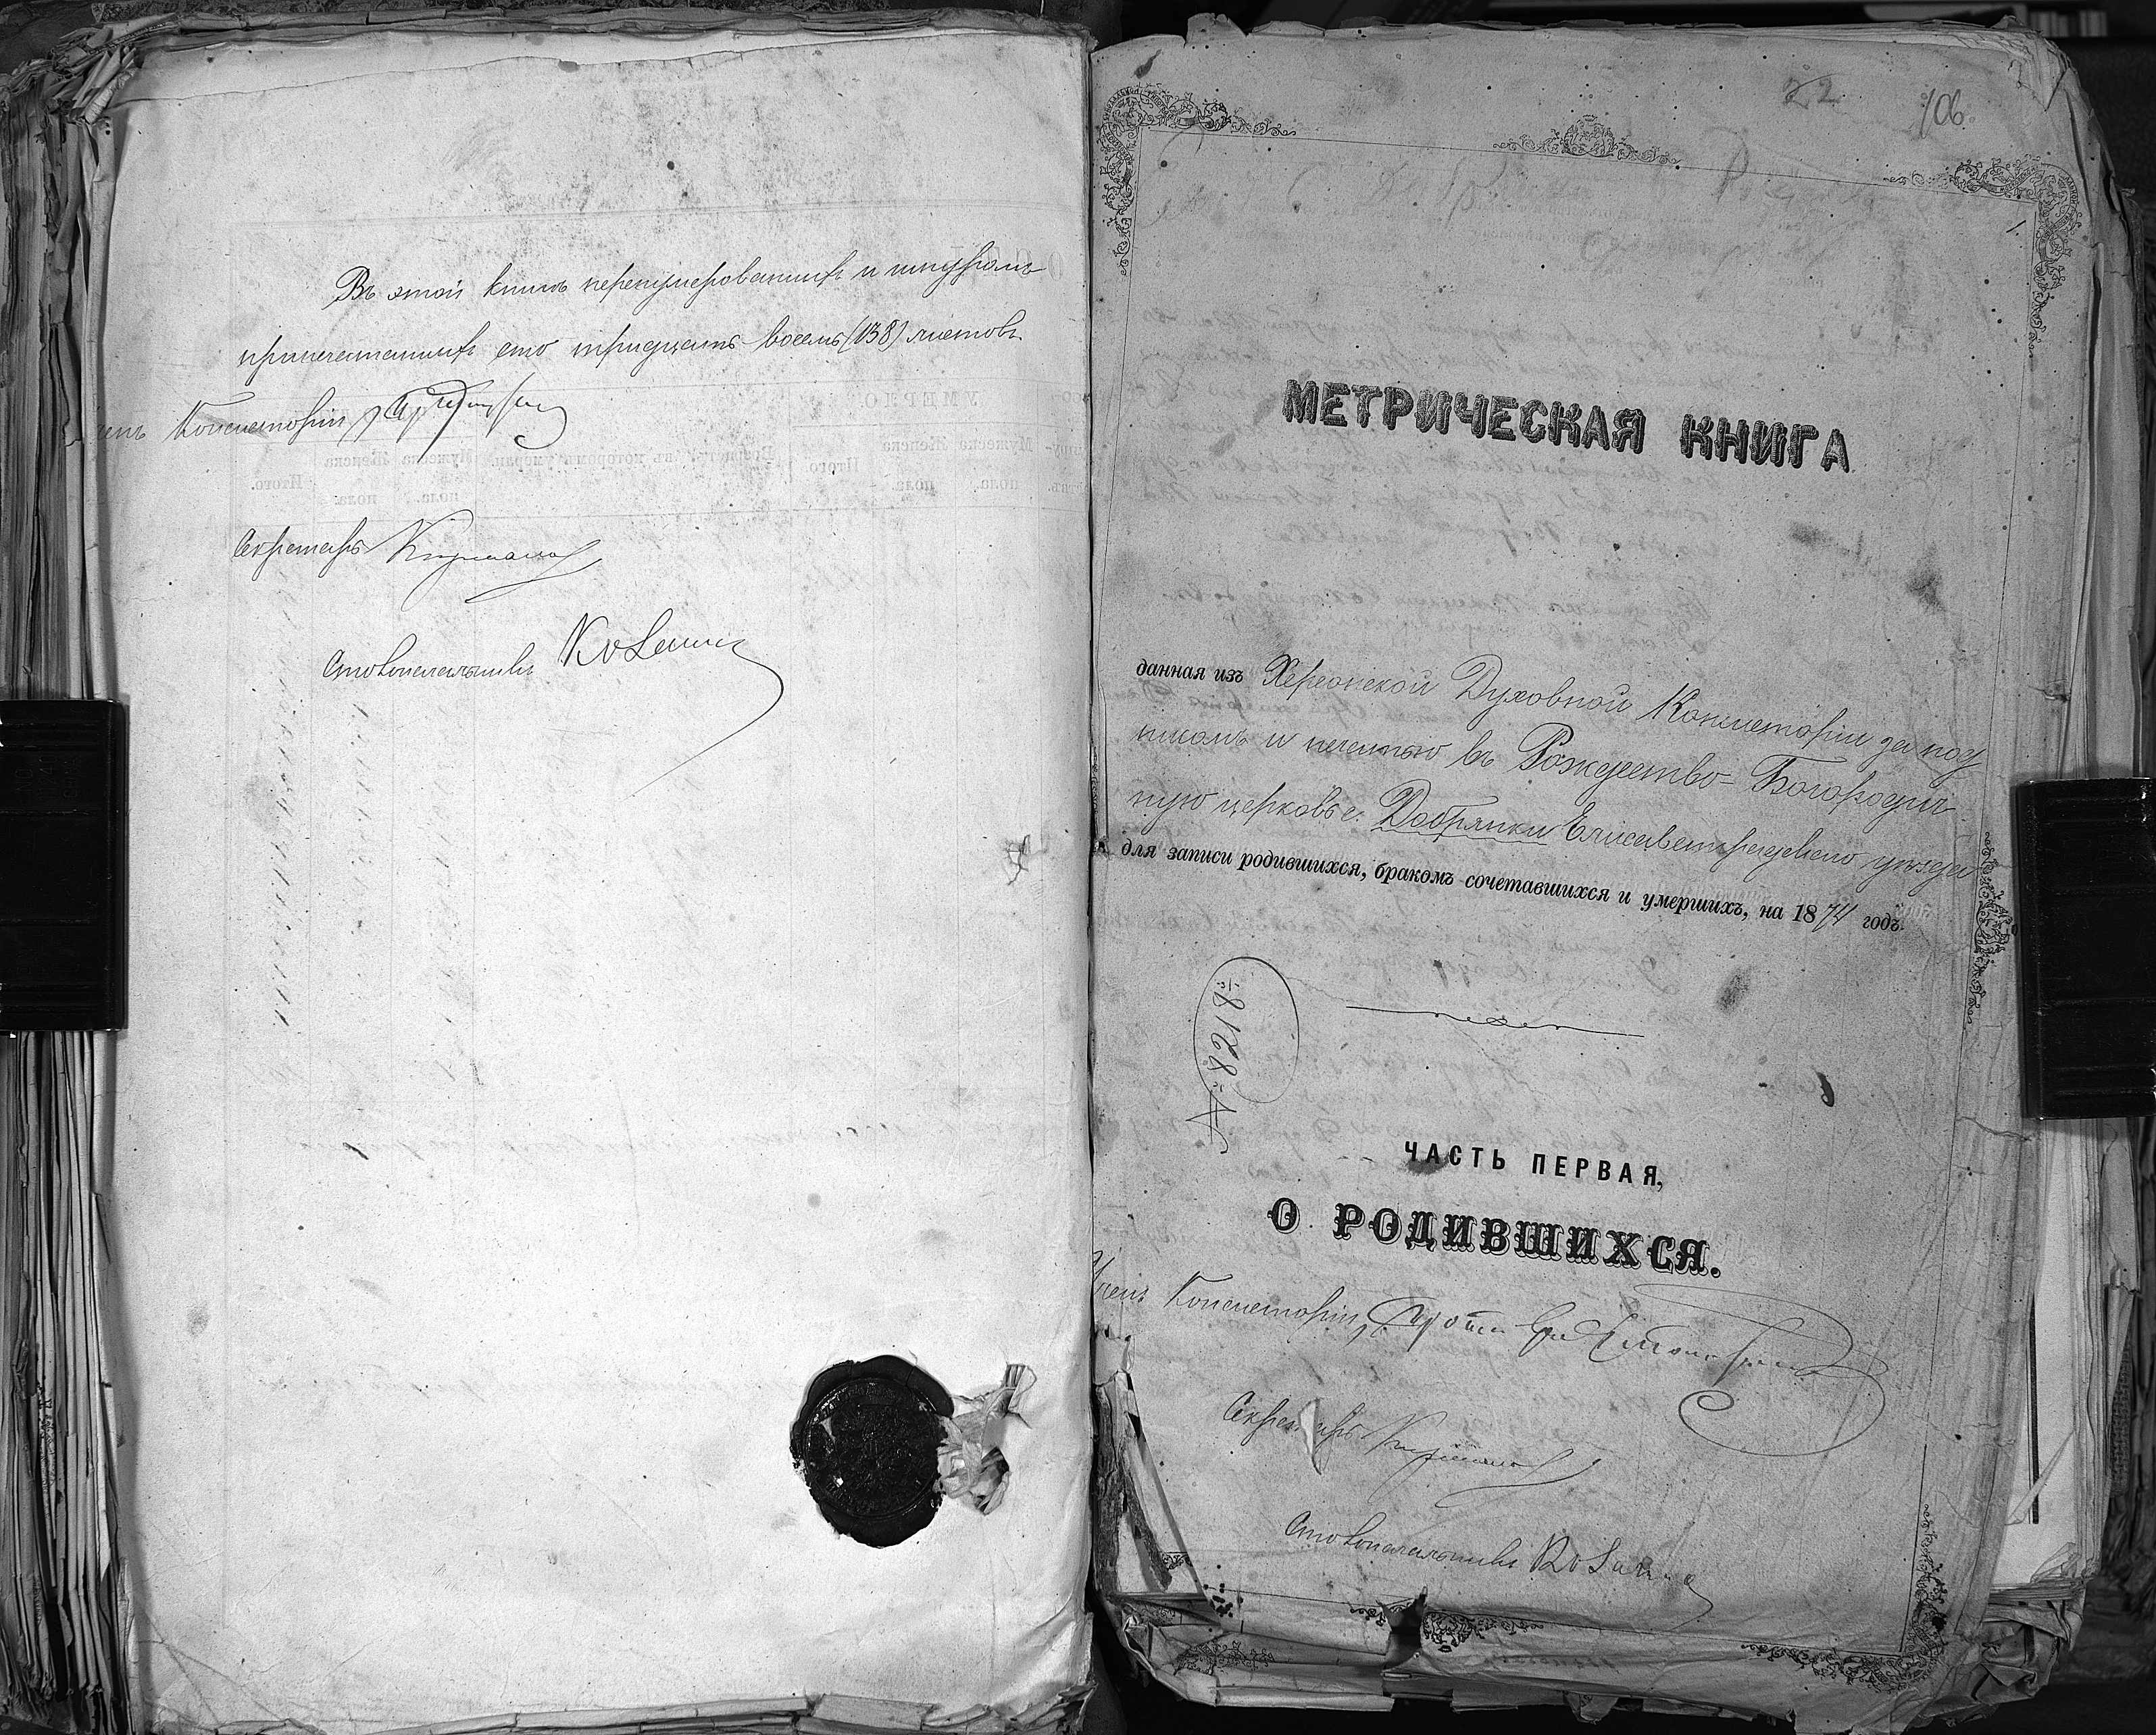 Въ этой книгѣ перенумерованныхъ и шнуромъ
припечатанныхъ сто тридцать восемь (138) листовъ.
Консисторіи
Секретарь
Столоначальникъ
22
106
МЕТРИЧЕСКАЯ КНИГА
данная изъ Херсонской Духовной Консисторіи за под
писомъ и печатью въ Рождество-Богородич
ную церковь с. Добрянки Елисаветградскаго уѣзда
для записи родившихся, бракомъ сочетавшихся и умершихъ, на 1874 годъ.
№ 8128
ЧАСТЬ ПЕРВАЯ,
О РОДИВШИХСЯ.
Членъ Консисторіи,
Секретарь
Столоначальникъ